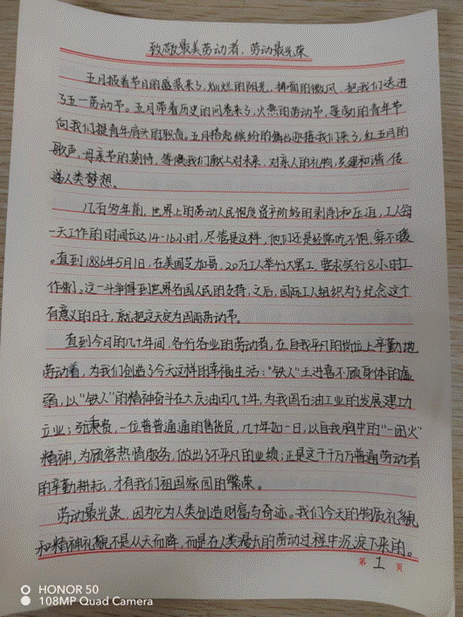 致敬最美劳动者，劳动最光荣
五月披着节日的盛装来了，灿烂的阳光，拂面的微风，把我们送进
了五一劳动节。五月带着历史的问卷来了，火热的劳动节，蓬勃的青年节
向我们提青年肩头的职责。五月搭起缤纷的舞台迎接我们来了，红五月的
歌声，母亲节的期待，等候我们献上对未来，对亲人的礼物，共建和谐，传
递人类梦想。
几百多年前，世界上的劳动人民饱受资产阶级的剥削和压迫，工人每
一天工作的时间长达14-16小时，尽管是这样，他们还是经常吃不饱，穿不暖
。直到1886年5月1日，在美国芝加哥，20万工人举行大罢工，要求实行8小时工
作制。这一斗争得到世界各国人民的支持，之后，国际工人组织为了纪念这个
有意义的日子，就把这天定为国际劳动节。
直到今日的几十年间，各行各业的劳动者，在自我平凡的岗位上辛勤地
劳动着，为我们创造了今天这样的幸福生活："铁人"王进喜不顾身体的虚
弱，以"铁人"的精神奋斗在大庆油田几十年，为我国石油工业的发展建功
立业；张秉贵，一位普普通通的售货员，几十年如一日，以自我胸中的"一团火"
精神，为顾客热情服务，做出了不平凡的业绩；正是这千千万万普通劳动者
的辛勤耕耘，才有我们祖国家园的繁荣。
劳动最光荣，因为它为人类创造财富与奇迹。我们今天的物质礼貌
和精神礼貌不是从天而降，而是在人类漫长的劳动过程中沉淀下来的。
第 1 页
HONOR 50
108MP Quad Camera